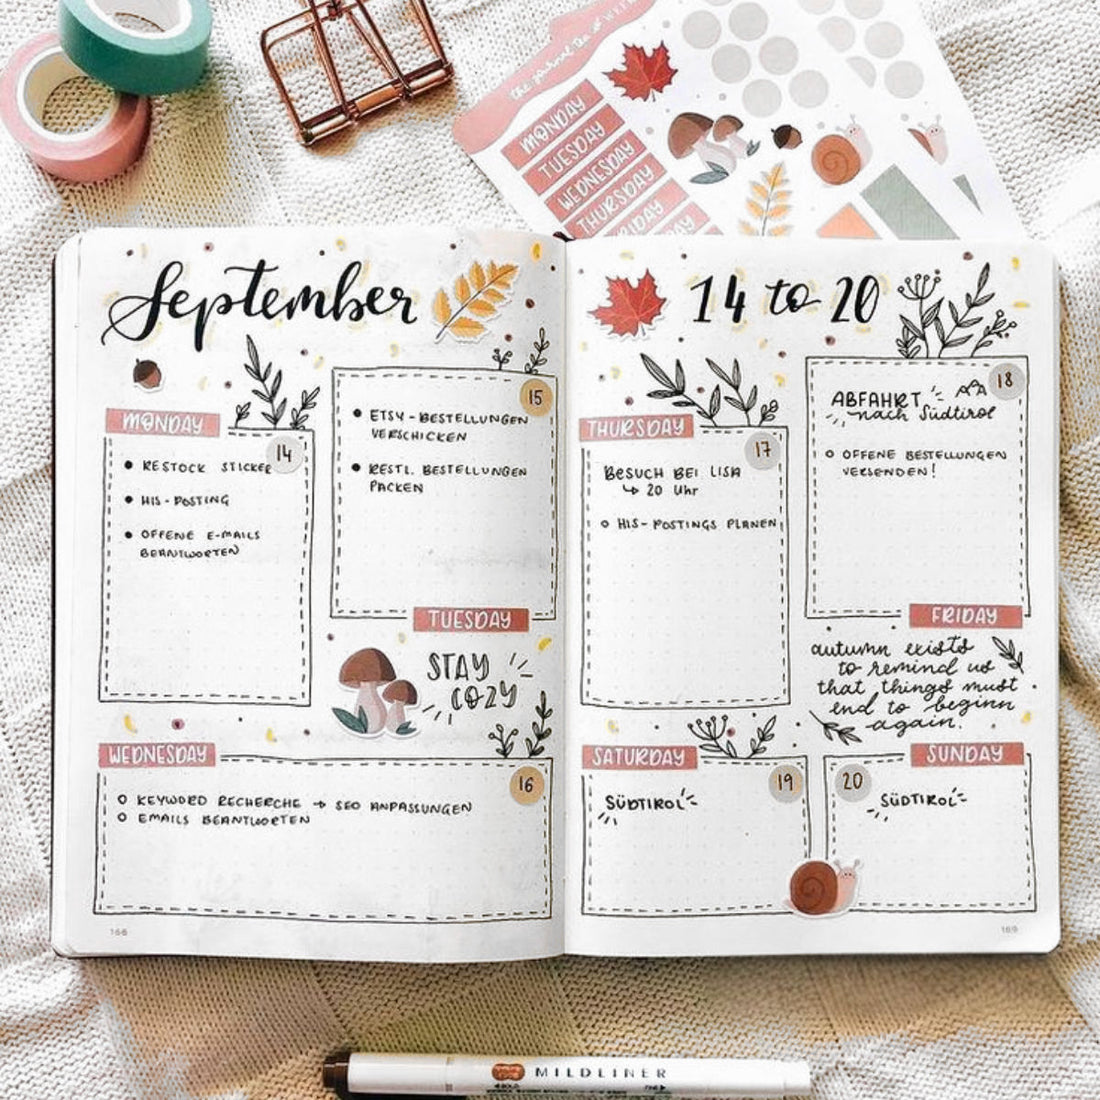 the journal
MONDAY
TUESDAY
WEDNESDAY
THURSDAY
FRIDAY
September
14 to 20
MONDAY
14
• RESTOCK STICKER
• HIS-POSTING
• OFFENE E-MAILS
BEANTWORTEN
15
• ETSY-BESTELLUNGEN
VERSCHICKEN
• RESTL. BESTELLUNGEN
PACKEN
TUESDAY
STAY
COZY
WEDNESDAY
16
○ KEYWORD RECHERCHE → SEO ANPASSUNGEN
○ EMAILS BEANTWORTEN
166
THURSDAY
17
BESUCH BEI LISA
↳ 20 Uhr
○ HIS-POSTINGS PLANEN
18
ABFAHRT
nach Südtirol
○ OFFENE BESTELLUNGEN
VERSENDEN!
FRIDAY
autumn exists
to remind us
that things must
end to beginn
again.
SATURDAY
19
SÜDTIROL
SUNDAY
20
SÜDTIROL
169
MILDLINER